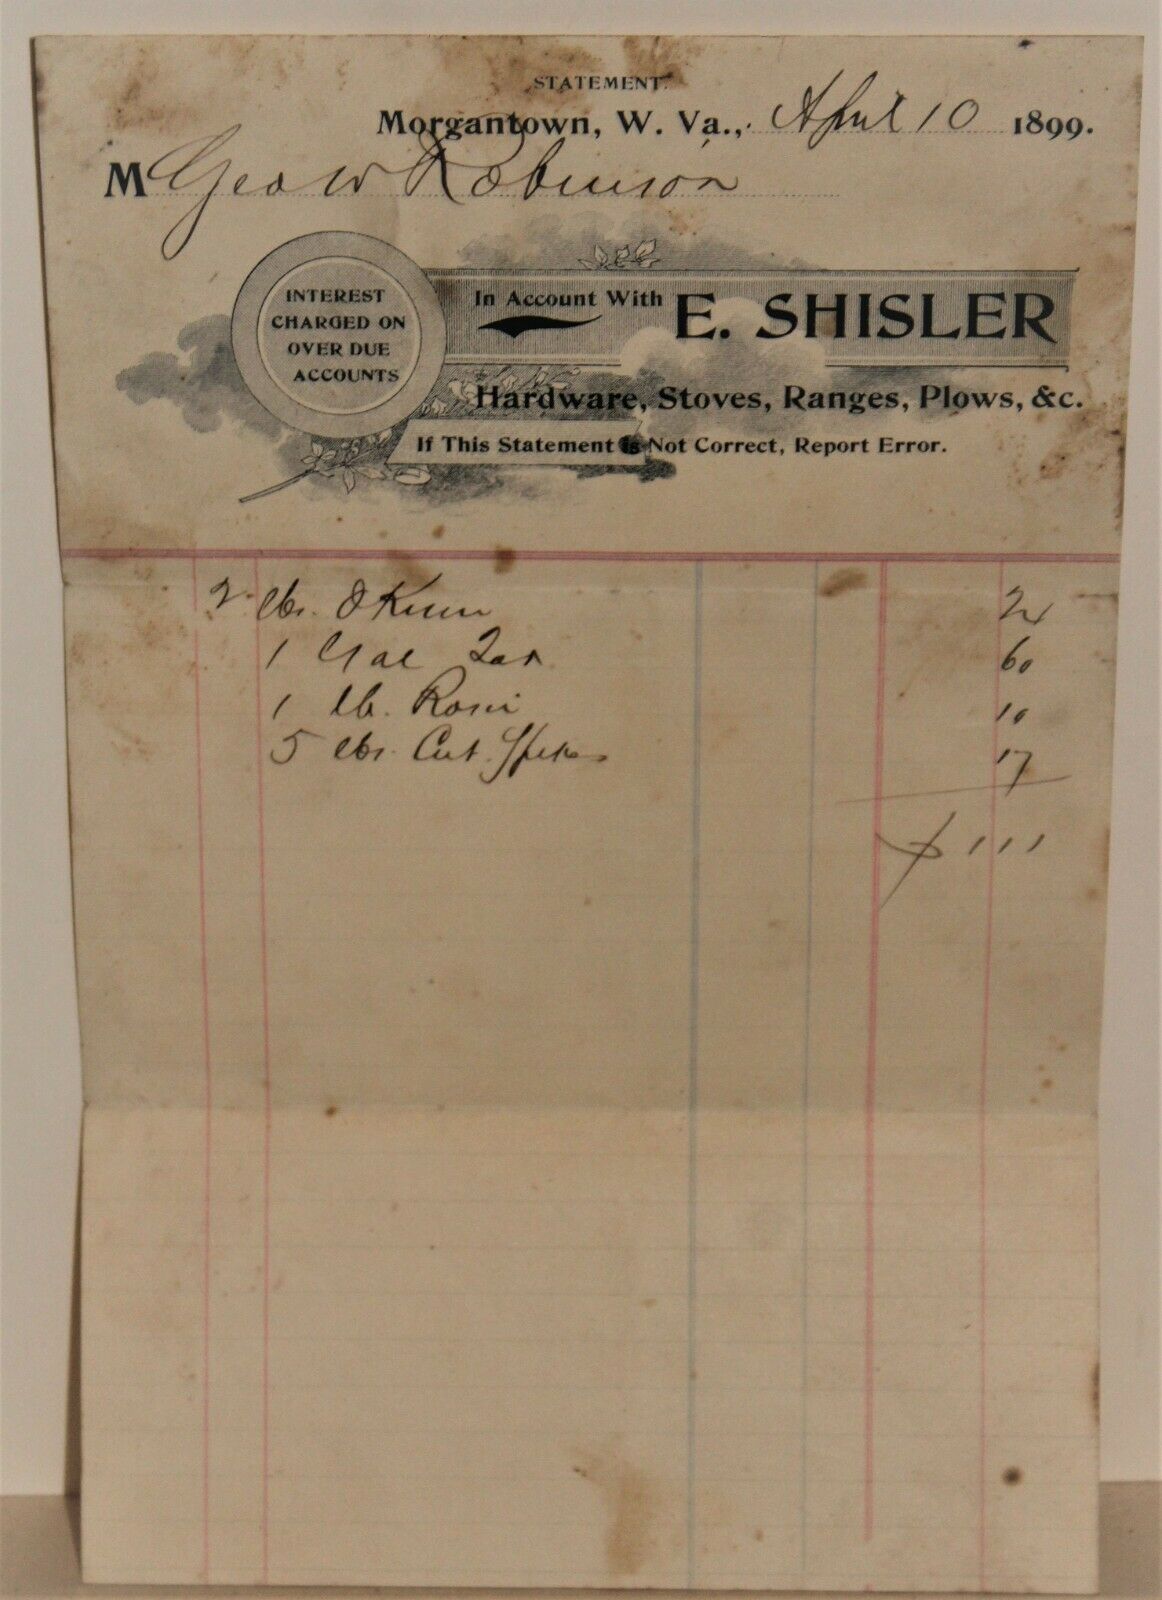 STATEMENT.
Morgantown, W. Va., April 10 1899.
M Geo W Robinson
INTEREST
CHARGED ON
OVER DUE
ACCOUNTS
In Account With E. SHISLER
Hardware, Stoves, Ranges, Plows, &c.
If This Statement is Not Correct, Report Error.
2 lbs. OKum 24
1 Gal Tar 60
1 lb. Rosin 10
5 lbs. Cut Spikes 17
$ 1 11